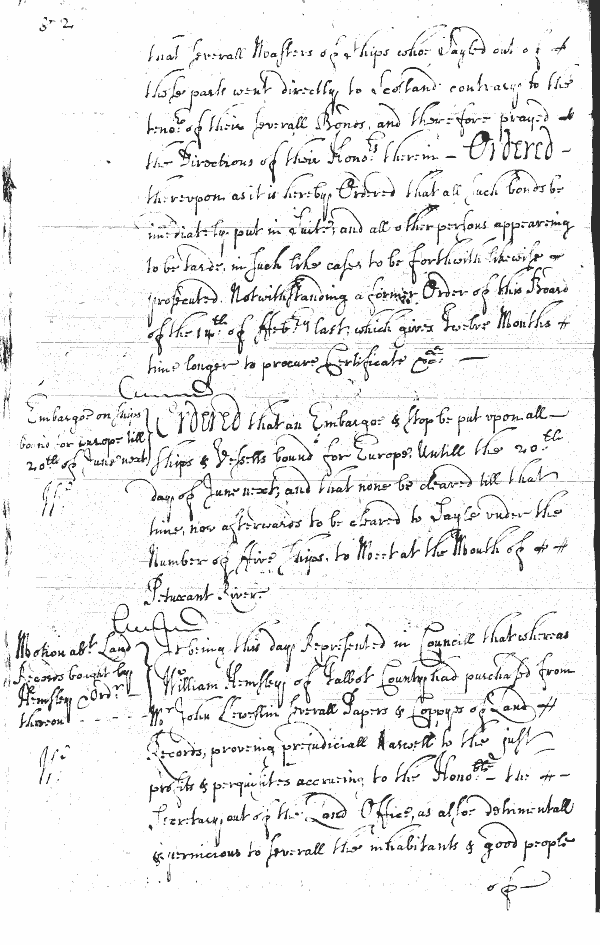 52
that severall Masters of Ships whoe Sayled out of
those parts went directly to Scotland contrary to the
teno.r of their severall Bonds, and therefore prayed
the Directions of their Hono.rs therein — Ordered —
thereupon as it is hereby Ordered that all such bonds be
imediately put in Suite, and all other persons appeareing
to be tarde, in such like cases to be forthwith likewise
prosecuted. Notwithstanding a former Order of this Board
of the 14th of ffeb.ry last, which gives Twelve Months
time longer to procure Certificate &ca. —
Embargoe on ships
bound for Europe till
20th of June next
Ordered that an Embargoe & stop be put upon all
ships & vessells bound for Europe, Untill the 20th
day of June next, and that none be cleared till that
time, nor afterwards to be cleared to Sayle under the
Number of ffive Ships, to Meet at the Mouth of
Petuxant River
Motion abt. Land
Records bought by
Hemsley & Ord.r
thereon
It being this day Represented in Councill that whereas
William Hemsley of Talbot County had purchased from
Mr. John Lewellin severall Papers & Coppyes of Land
Records, proveing prejudiciall aswell to the just
profits & perquisites accrueing to the Hono.ble the
Secretary out of the Land Office, as alsoe detrimentall
& pernicious to severall the inhabitants & good people
of